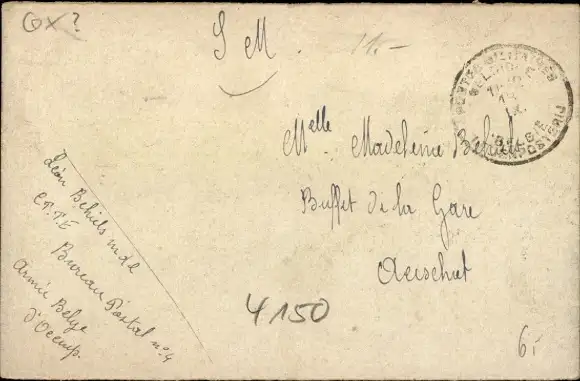 GX?
S M.
11.-
POSTES MILITAIRES
BELGIQUE
BELGIE
Melle Madeleine Behiels
Buffet de la Gare
Aerschot
Léon Behiels mdl
C.P.P.E
Bureau Postal n°4
Armée Belge
d'Occup.
4150
6,-